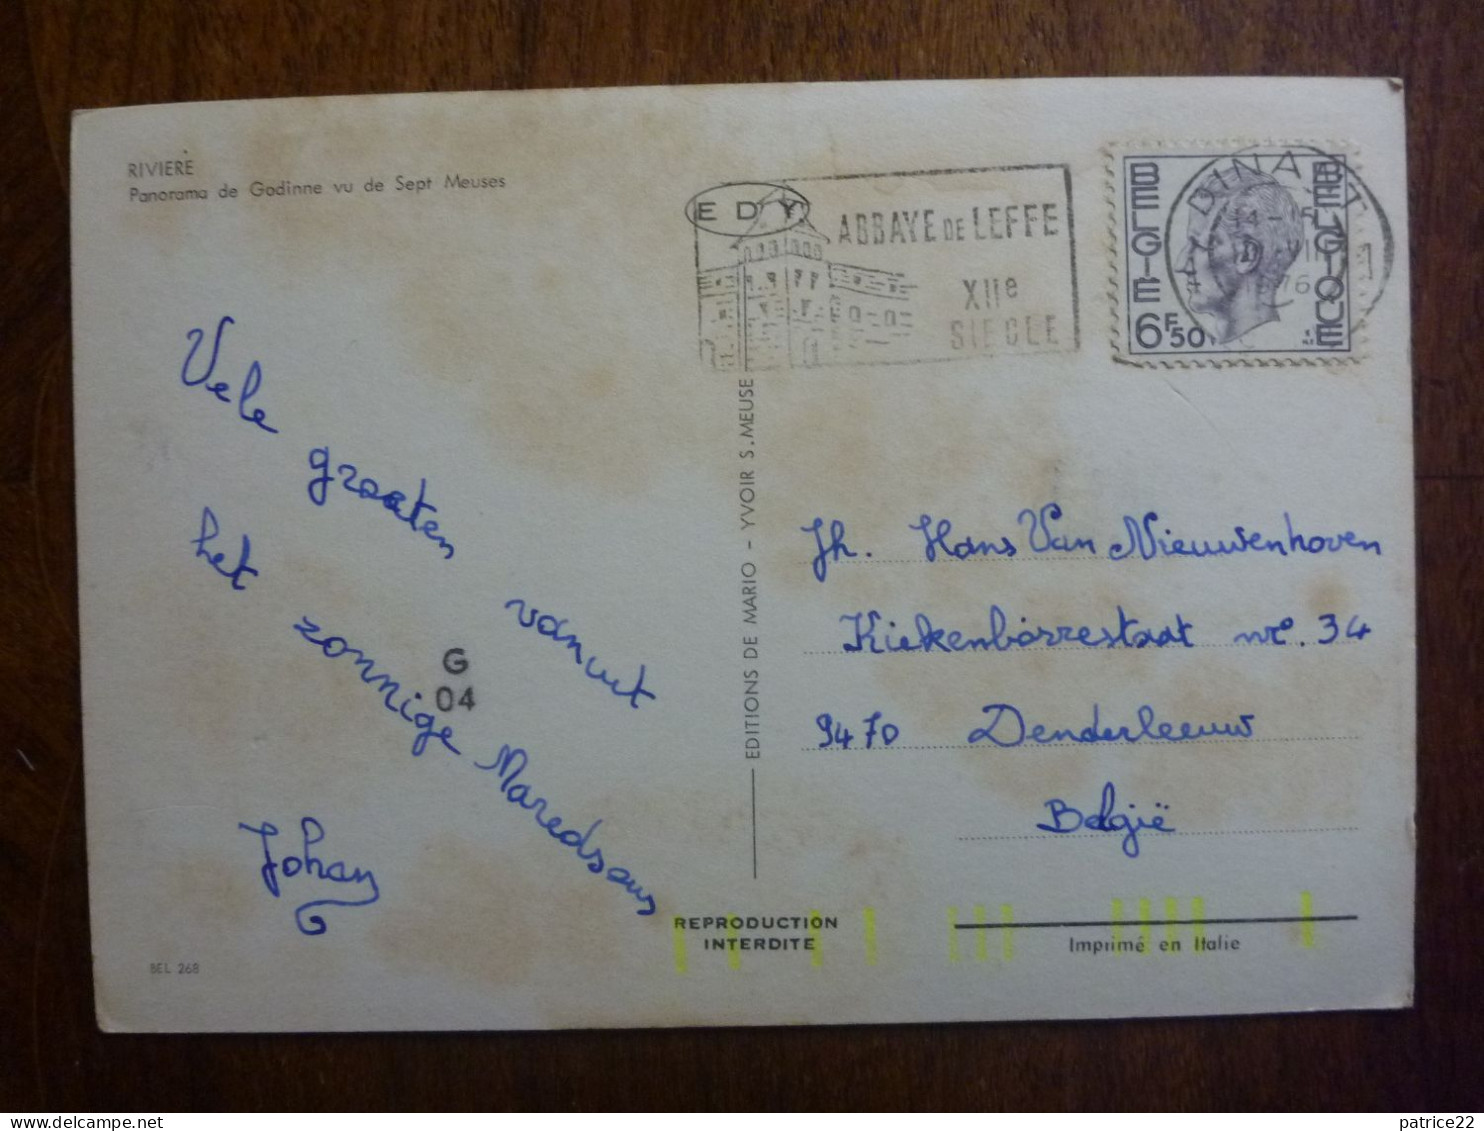 RIVIERE
Panorama de Godinne vu de Sept Meuses
EDY
ABBAYE DE LEFFE
XIIe
SIECLE
DINANT
14-15
1976
BELGIE
BELGIQUE
6F50
Vele groeten vanuit
het zonnige Maredsous
Johan
G
04
EDITIONS DE MARIO - YVOIR S.MEUSE
Jh. Hans Van Nieuwenhoven
Kiekenborrestaat nr. 34
9470 Denderleeuw
België
REPRODUCTION
INTERDITE
Imprimé en Italie
BEL 268
patrice22